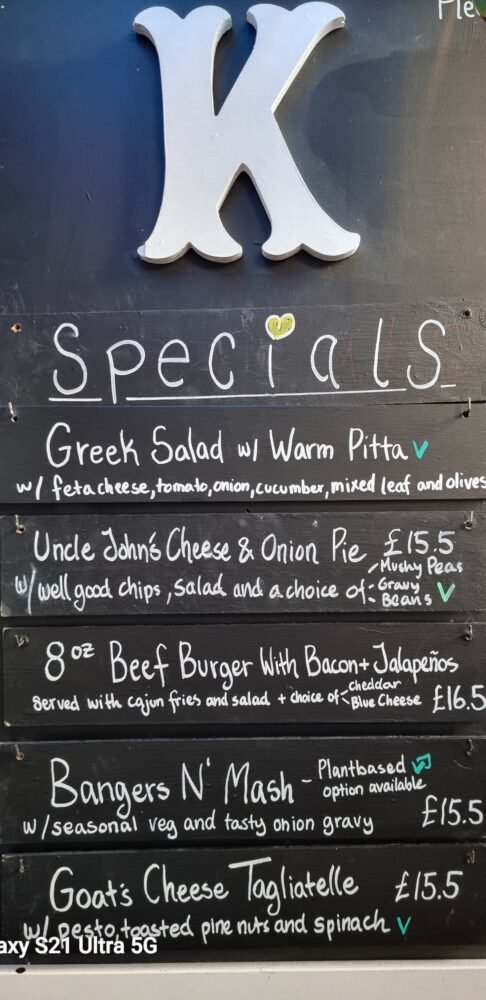 Ple
K
Specials
Greek Salad w/ Warm Pitta V
w/ feta cheese, tomato, onion, cucumber, mixed leaf and olives
Uncle John's Cheese & Onion Pie £15.5
w/ well good chips, salad and a choice of - Mushy Peas
- Gravy
- Beans V
8oz Beef Burger With Bacon + Jalapeños
served with cajun fries and salad + choice of < cheddar
Blue Cheese £16.5
Bangers N' Mash - Plantbased
option available
w/ seasonal veg and tasty onion gravy £15.5
Goat's Cheese Tagliatelle £15.5
w/ pesto, toasted pine nuts and spinach V
axy S21 Ultra 5G